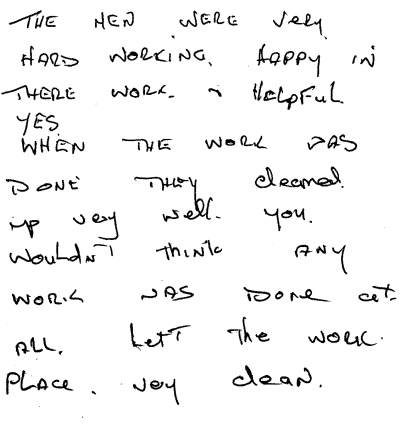 THE MEN WERE very
HARD WORKING. HAPPY IN
THERE WORK. & HelpFul
YES
WHEN THE WORK WAS
DONE THEY cleaned.
up very well. you.
wouldn't think ANY
WORK WAS DONE at-
ALL. LefT The WORK.
PLACE. very clean.